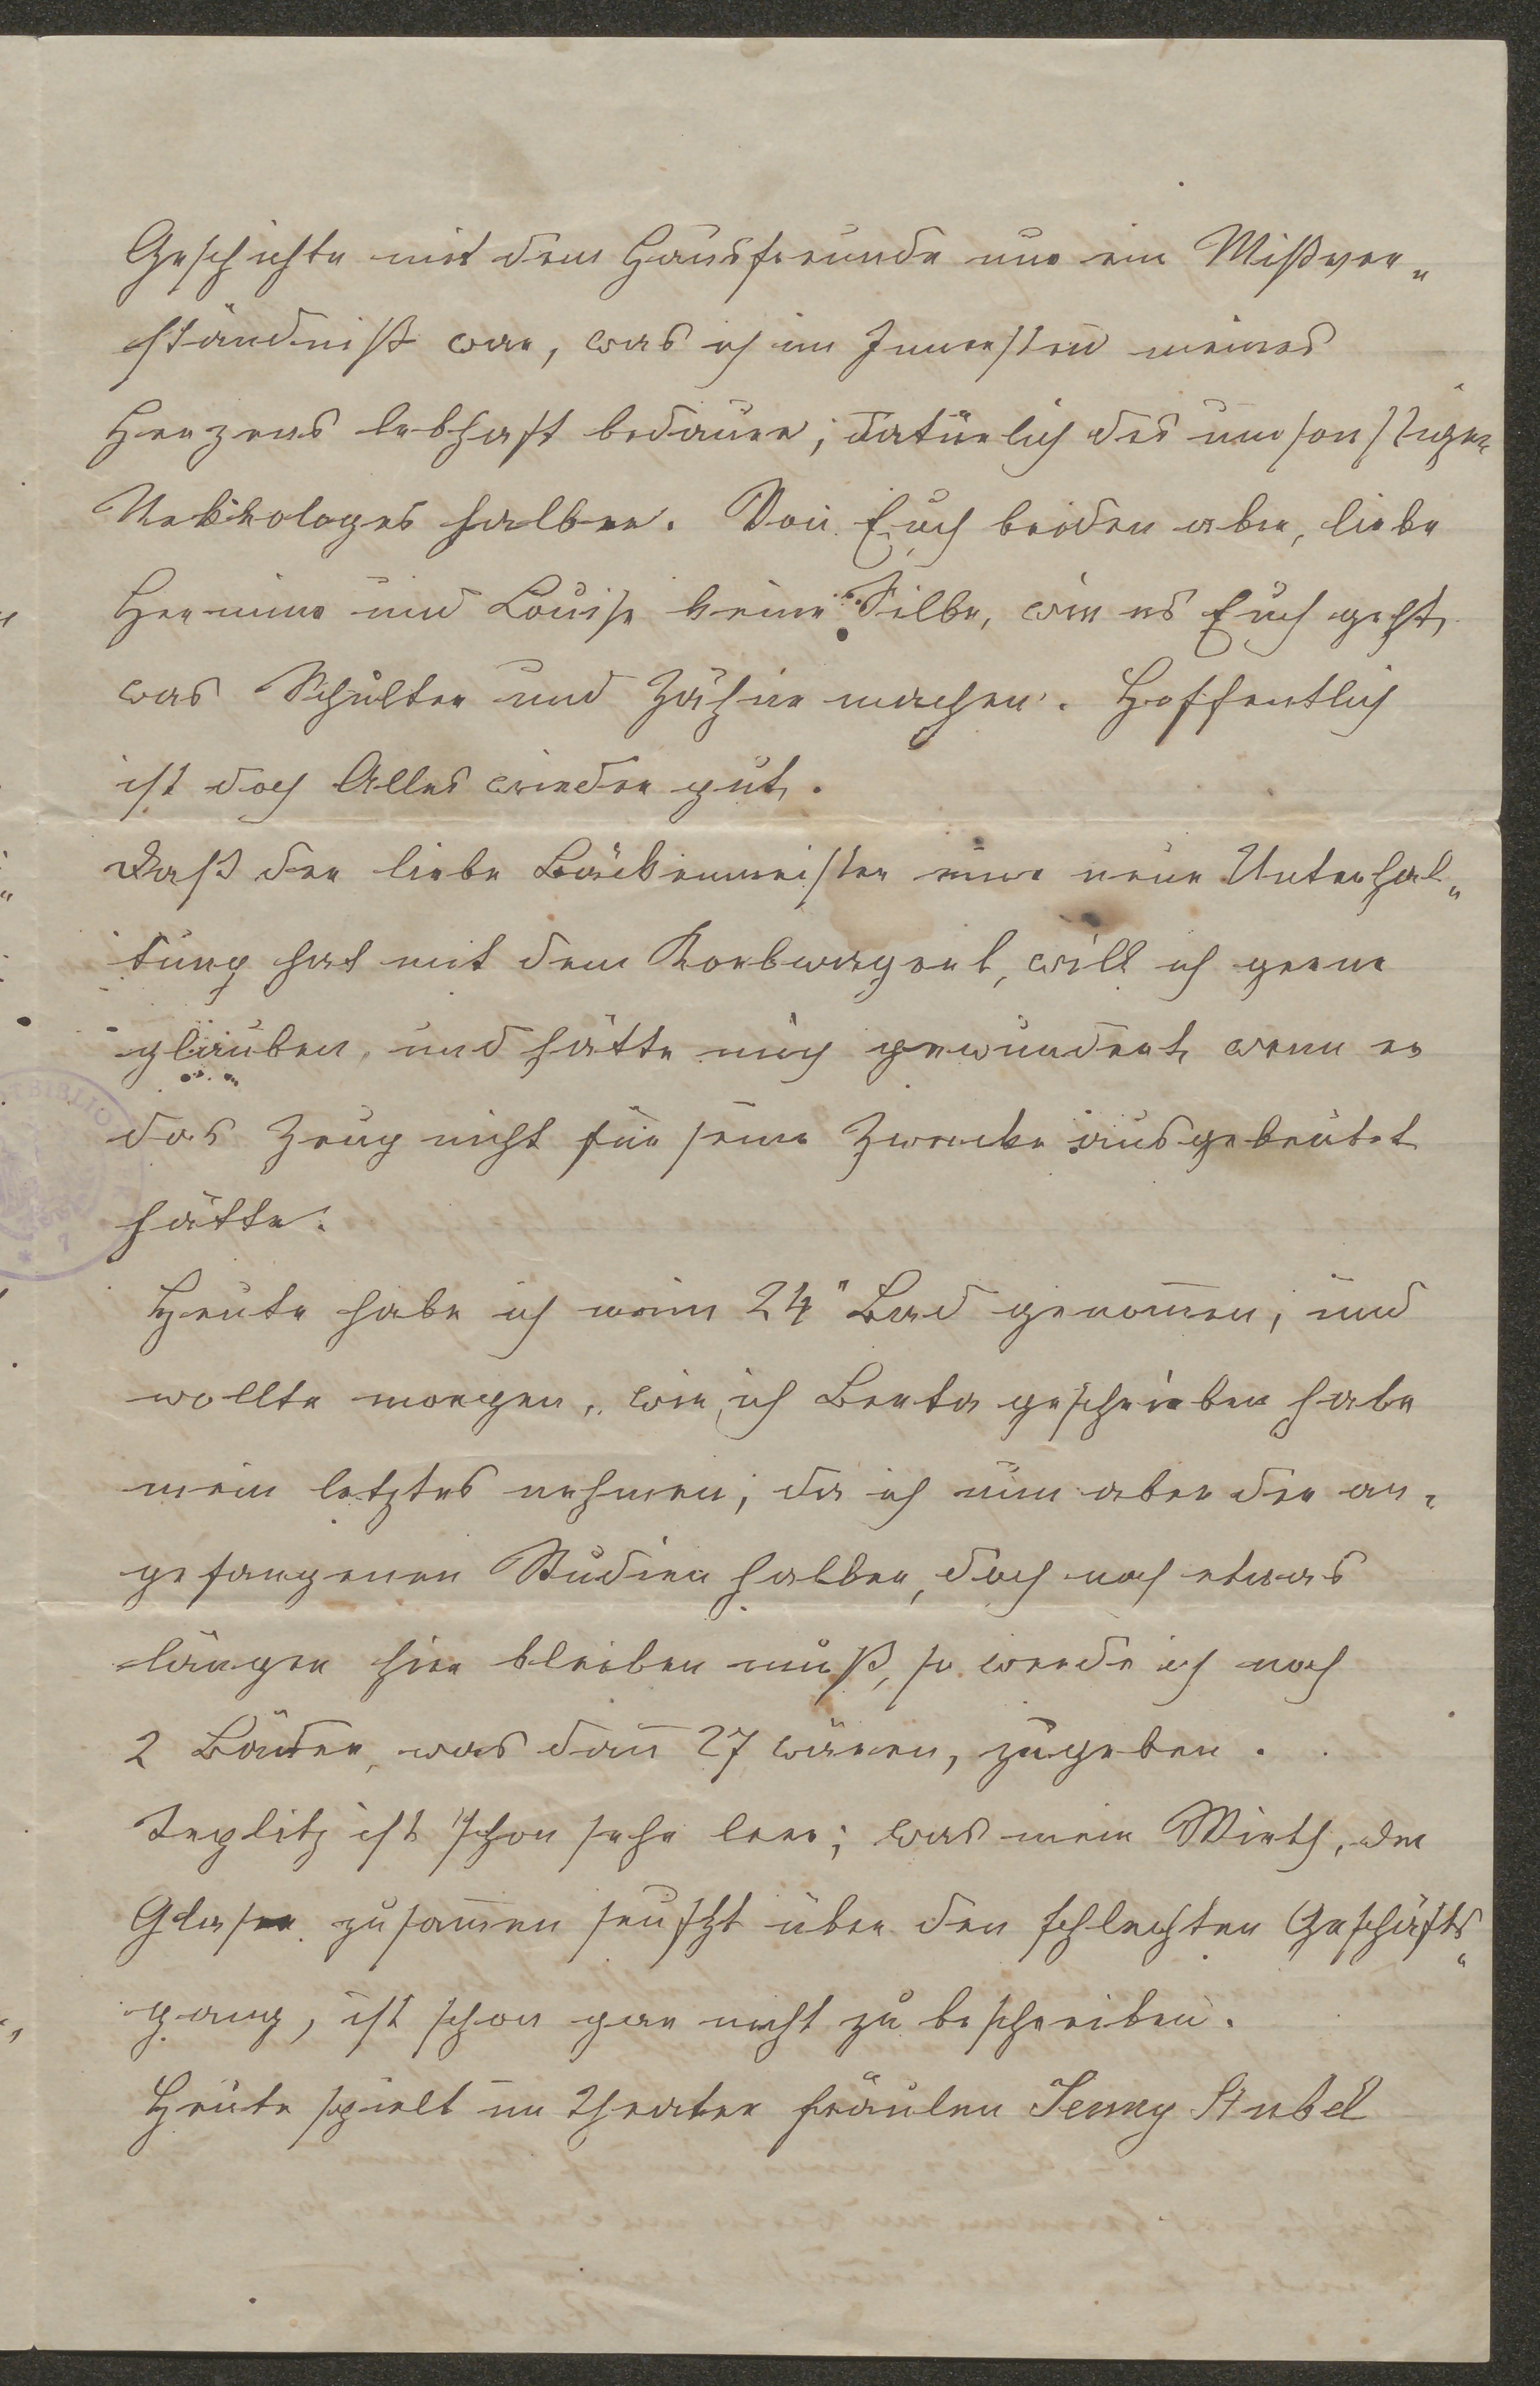 Geschichte mit dem Hausfreunde nur ein Mißver„
ständniß war, was ich im Innersten meines
Herzens lebhaft bedaure; natürlich des umsonstigen
Nekrologes halber. Von Euch beiden aber, liebe
Hermine und Louise keine Silbe, wie es Euch geht,
was Schulter und Zähne machen. Hoffentlich
ist doch Alles wieder gut.
Daß der liebe Bäckermeister eine neue Unterhal„
tung hat mit dem Korbwagerl, will ich gerne
glauben, und hätte mich gewundert, wenn er
das Zeug nicht für seine Zwecke ausgebeutet
hätte.
Heute habe ich mein 24" Bad genom̅en, und
wollte morgen, wie ich Berta geschrieben habe
mein letztes nehmen; da ich nun aber der an„
gefangenen Studien halber, doch noch etwas
länger hier bleiben muß, so werde ich noch
2 Bäder, was dan̅ 27 wären, zugeben.
Teplitz ist schon sehr leer; was mein Wirth, der
Glaser zusam̅en seufzt über den schlechten Geschäfts„
gang, ist schon gar nicht zu beschreiben.
Heute spielt im Theater Fräulen Jenny Stubel